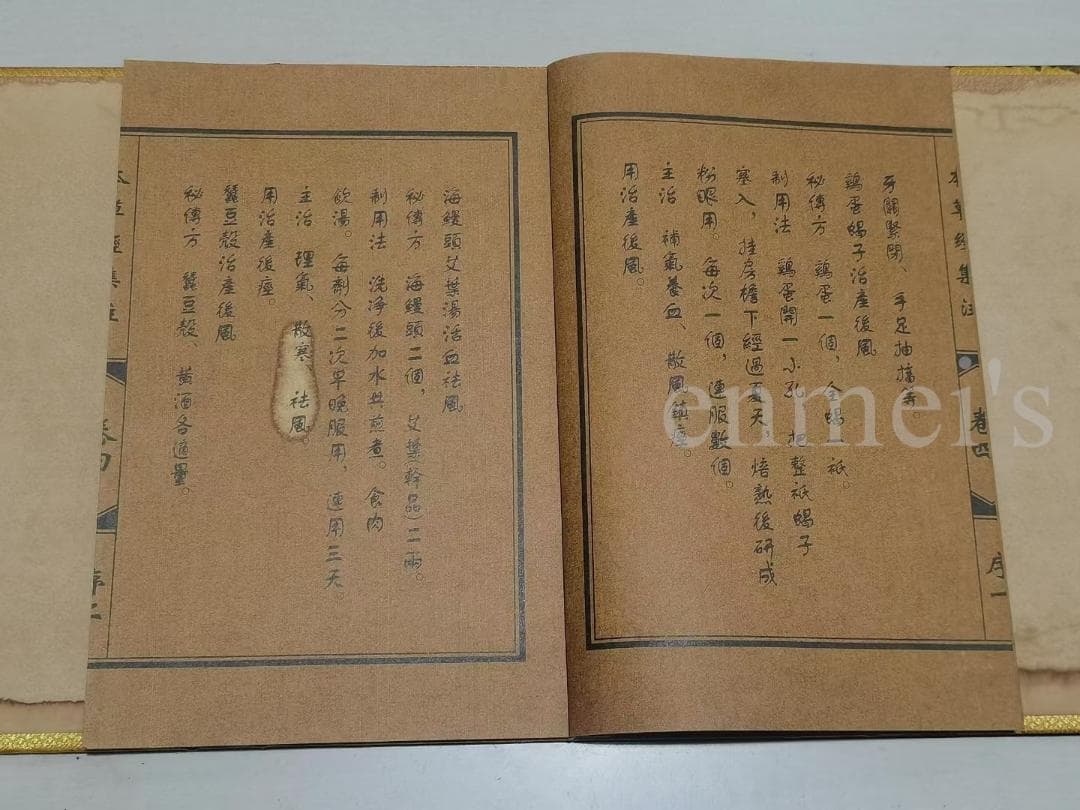 牙關緊閉、手足抽搐等。
鷄蛋蝎子治產後風
秘傳方 鷄蛋一個，全蝎一祇。
制用法 鷄蛋開一小孔，把整祇蝎子
塞入，挂房檐下經過夏天，焙熟後研成
粉眼用。每次一個，連服數個。
主治 補氣養血、散風鎮痙。
用治產後風。
海鰻頭艾葉湯活血祛風
秘傳方 海鰻頭二個，艾葉幹品）二兩。
制用法 洗净後加水共煎煮。食肉
飲湯。每劑分二次早晚服用，連用三天。
主治 理氣、散寒、祛風。
用治產後痙。
蠶豆殼治產後風
秘傳方 蠶豆殼、黃酒各適量。
本草經集注
卷四
序一
本草經集注
卷四
序二
enmei's